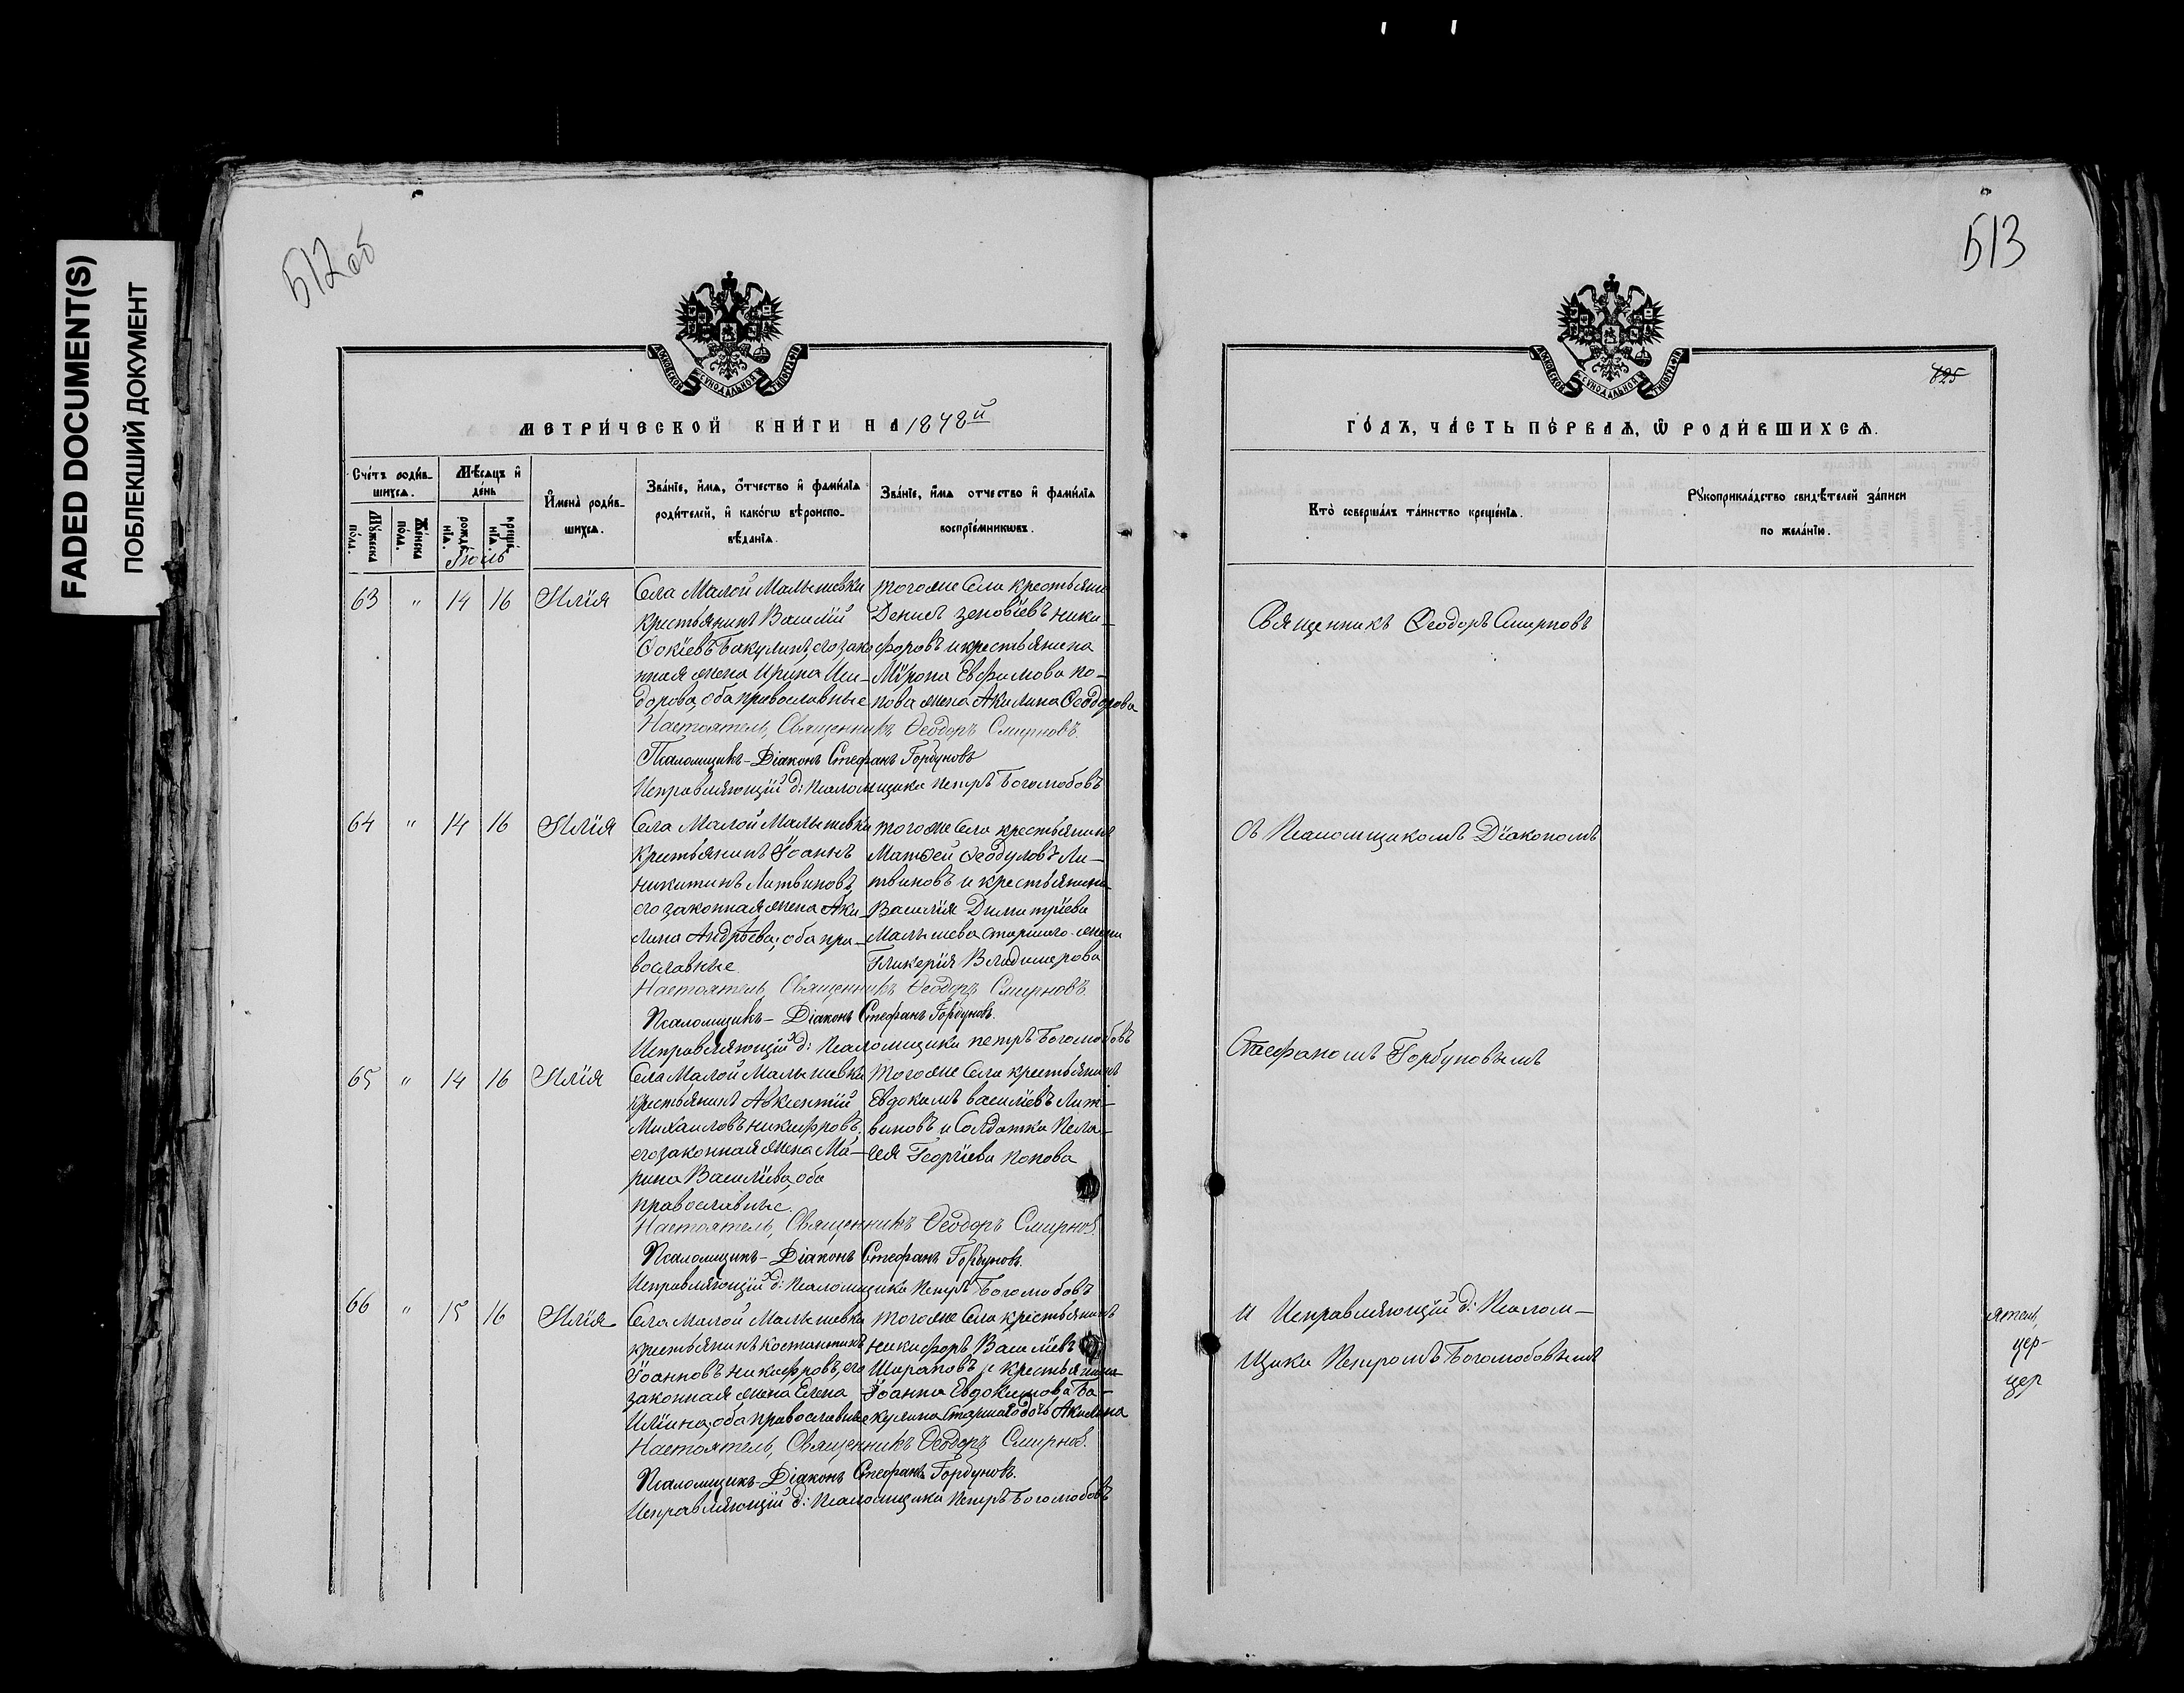 FADED DOCUMENT(S)
ПОБЛЕКШИЙ ДОКУМЕНТ
512 об
МОСКОВСКОЙ СѴНОДАЛЬНОЙ ТИПОГРАФІИ
МЕТРИ́ЧЕСКОЙ КНИ́ГИ НА 1878й
Сче́тъ роди́вшихсѧ.
Мѣ́сѧцъ и҆ де́нь
И҆мена̀ роди́вшихсѧ.
Зва́нїе, и҆́мѧ, ѻ҆́тчество и҆ фами́лїѧ роди́телей, и҆ како́гѡ вѣроисповѣ́данїѧ.
Зва́нїе, и҆́мѧ отчество и҆ фами́лїѧ воспрїе́мникѡвъ.
Мꙋ́жеска по́ла.
Же́нска по́ла.
рожде́нїѧ.
креще́нїѧ.
Іюль
63 " 14 16 Илія
Села Малой Малышевки
крестьянинъ Василій
Ѳокіевъ Бакулинъ, его зако
нная жена Ирина Иси-
дорова, оба православные
Тогоже Села крестьянин
Денисъ Зеновіевъ Ники-
форовъ и крестьянина
Мѵрона Евфимова По-
пова жена Акилина Ѳеодорова
Настоятель, Священникъ Ѳеодоръ Смирновъ.
Псаломщикъ - Діаконъ Стефанъ Горбуновъ
Исправляющій д: Псаломщика Петръ Боголюбовъ
64 " 14 16 Илія
Села Малой Малышевки
крестьянинъ Іоаннъ
Никитинъ Литвиновъ,
его законная жена Аки-
лина Андрѣева, оба пра-
вославные
Тогоже Села крестьянинъ
Матѳей Ѳеодуловъ Ли-
твиновъ и крестьянина
Василія Димитріева
Малышева старшаго жена
Гликерія Владимерова
Настоятель, Священникъ Ѳеодоръ Смирновъ.
Псаломщикъ - Діаконъ Стефанъ Горбуновъ.
Исправляющій д: Псаломщика Петръ Боголюбовъ
65 " 14 16 Илія
Села Малой Малышевки
крестьянинъ Авксентій
Михаиловъ Никифровъ,
его законная жена Ма-
рина Василіева, оба
православные.
Тогоже Села крестьянинъ
Евдокимъ Василіевъ Лит-
виновъ и Солдатка Пела-
гея Георгіева Попова
Настоятель, Священникъ Ѳеодоръ Смирнов.
Псаломщикъ - Діаконъ Стефанъ Горбуновъ.
Исправляющій д: Псаломщика Петръ Боголюбовъ
66 " 15 16 Илія
Села Малой Малышевки
крестьянинъ Костантинъ
Іоанновъ Никифровъ, его
законная жена Елена
Иліина, оба православные
Тогоже Села крестьянинъ
Никифоръ Василіевъ
Шараповъ и крестьянина
Іоанна Евдокимова Ба-
кулина старшаго дочь Акилина
Настоятель, Священникъ Ѳеодоръ Смирнов.
Псаломщикъ - Діаконъ Стефанъ Горбуновъ.
Исправляющій д: Псаломщика Петръ Боголюбовъ
513
МОСКОВСКОЙ СѴНОДАЛЬНОЙ ТИПОГРАФІИ
825
ГО́ДЪ, ЧА́СТЬ ПЕ́РВАѦ, Ѡ҆ РОДИ́ВШИХСѦ.
Кто̀ соверша́лъ та́инство креще́нїѧ.
Рꙋкоприкла́дство свидѣ́телей за́писи по жела́нїю.
Священникъ Ѳеодоръ Смирновъ
съ Псаломщикомъ Діакономъ
Стефаномъ Горбуновымъ
и Исправляющій д: Псалом-
щика Петромъ Боголюбовымъ
ятель,
цер-
цер